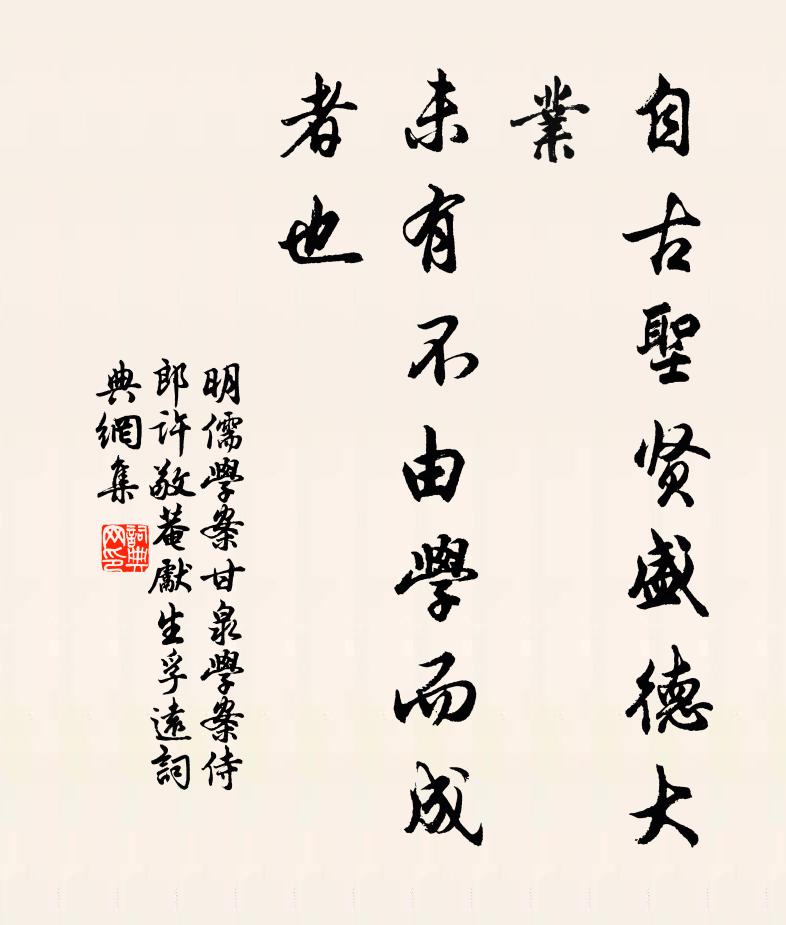 自古聖贤盛德大
業
未有不由學而成
者也
明儒學案甘泉學案侍
郎许敬菴獻生孚遠詞
典網集
詞典
网印